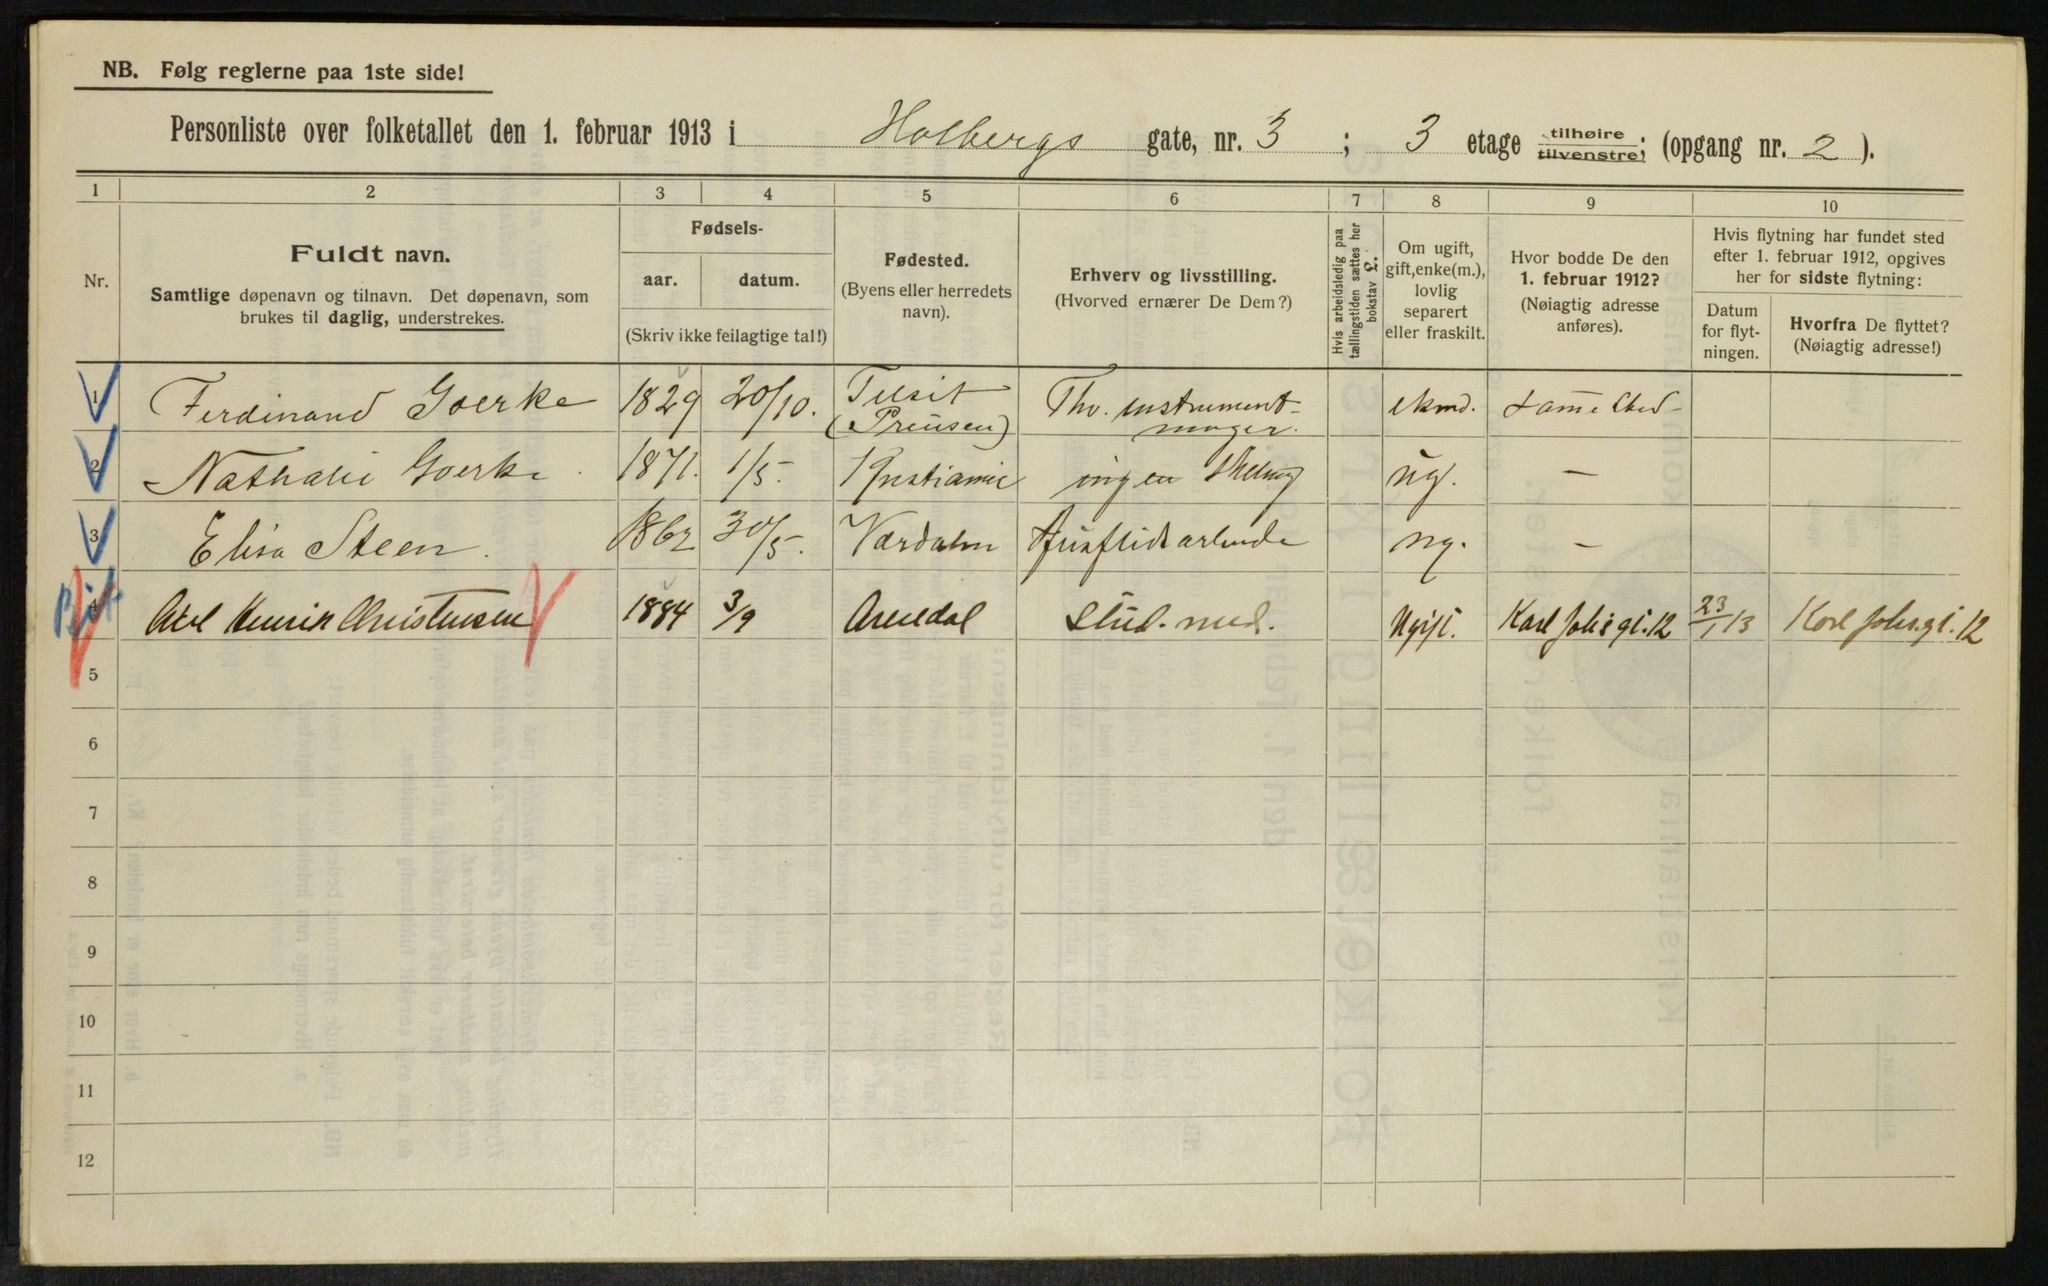 NB. Følg reglerne paa 1ste side!
Personliste over folketallet den 1. februar 1913 i Holbergs gate, nr. 3 ; 3 etage tilhøire tilvenstre; (opgang nr. 2 ).
1 2 3 4 5 6 7 8 9 10
Nr.
Fuldt navn.
Samtlige døpenavn og tilnavn. Det døpenavn, som
brukes til daglig, understrekes.
Fødsels-
aar. datum.
(Skriv ikke feilagtige tal!)
Fødested.
(Byens eller herredets
navn).
Erhverv og livsstilling.
(Hvorved ernærer De Dem?)
Hvis arbeidsledig paa
tællingstiden sættes her
bokstav L.
Om ugift,
gift, enke(m.),
lovlig
separert
eller fraskilt.
Hvor bodde De den
1. februar 1912?
(Nøiagtig adresse
anføres).
Hvis flytning har fundet sted
efter 1. februar 1912, opgives
her for sidste flytning:
Datum
for flyt-
ningen.
Hvorfra De flyttet?
(Nøiagtig adresse!)
1 Ferdinand Goerke 1829 20/10. Tilsit (Preusen) Fhv. instrument- mager. ekmd. samme sted -
2 Nathalie Goerke 1871. 1/5. Kristiania ingen Stilling ug. —
3 Elisa Steen. 1862 30/5. Værdalen Husflidsarbeide ug. —
4 Axel Henrik Christensen 1884 3/9 Arendal Stud. med. Ugift. Karl Johs gt. 12 23/1 13 Karl Johs. gt. 12
5
6
7
8
9
10
11
12